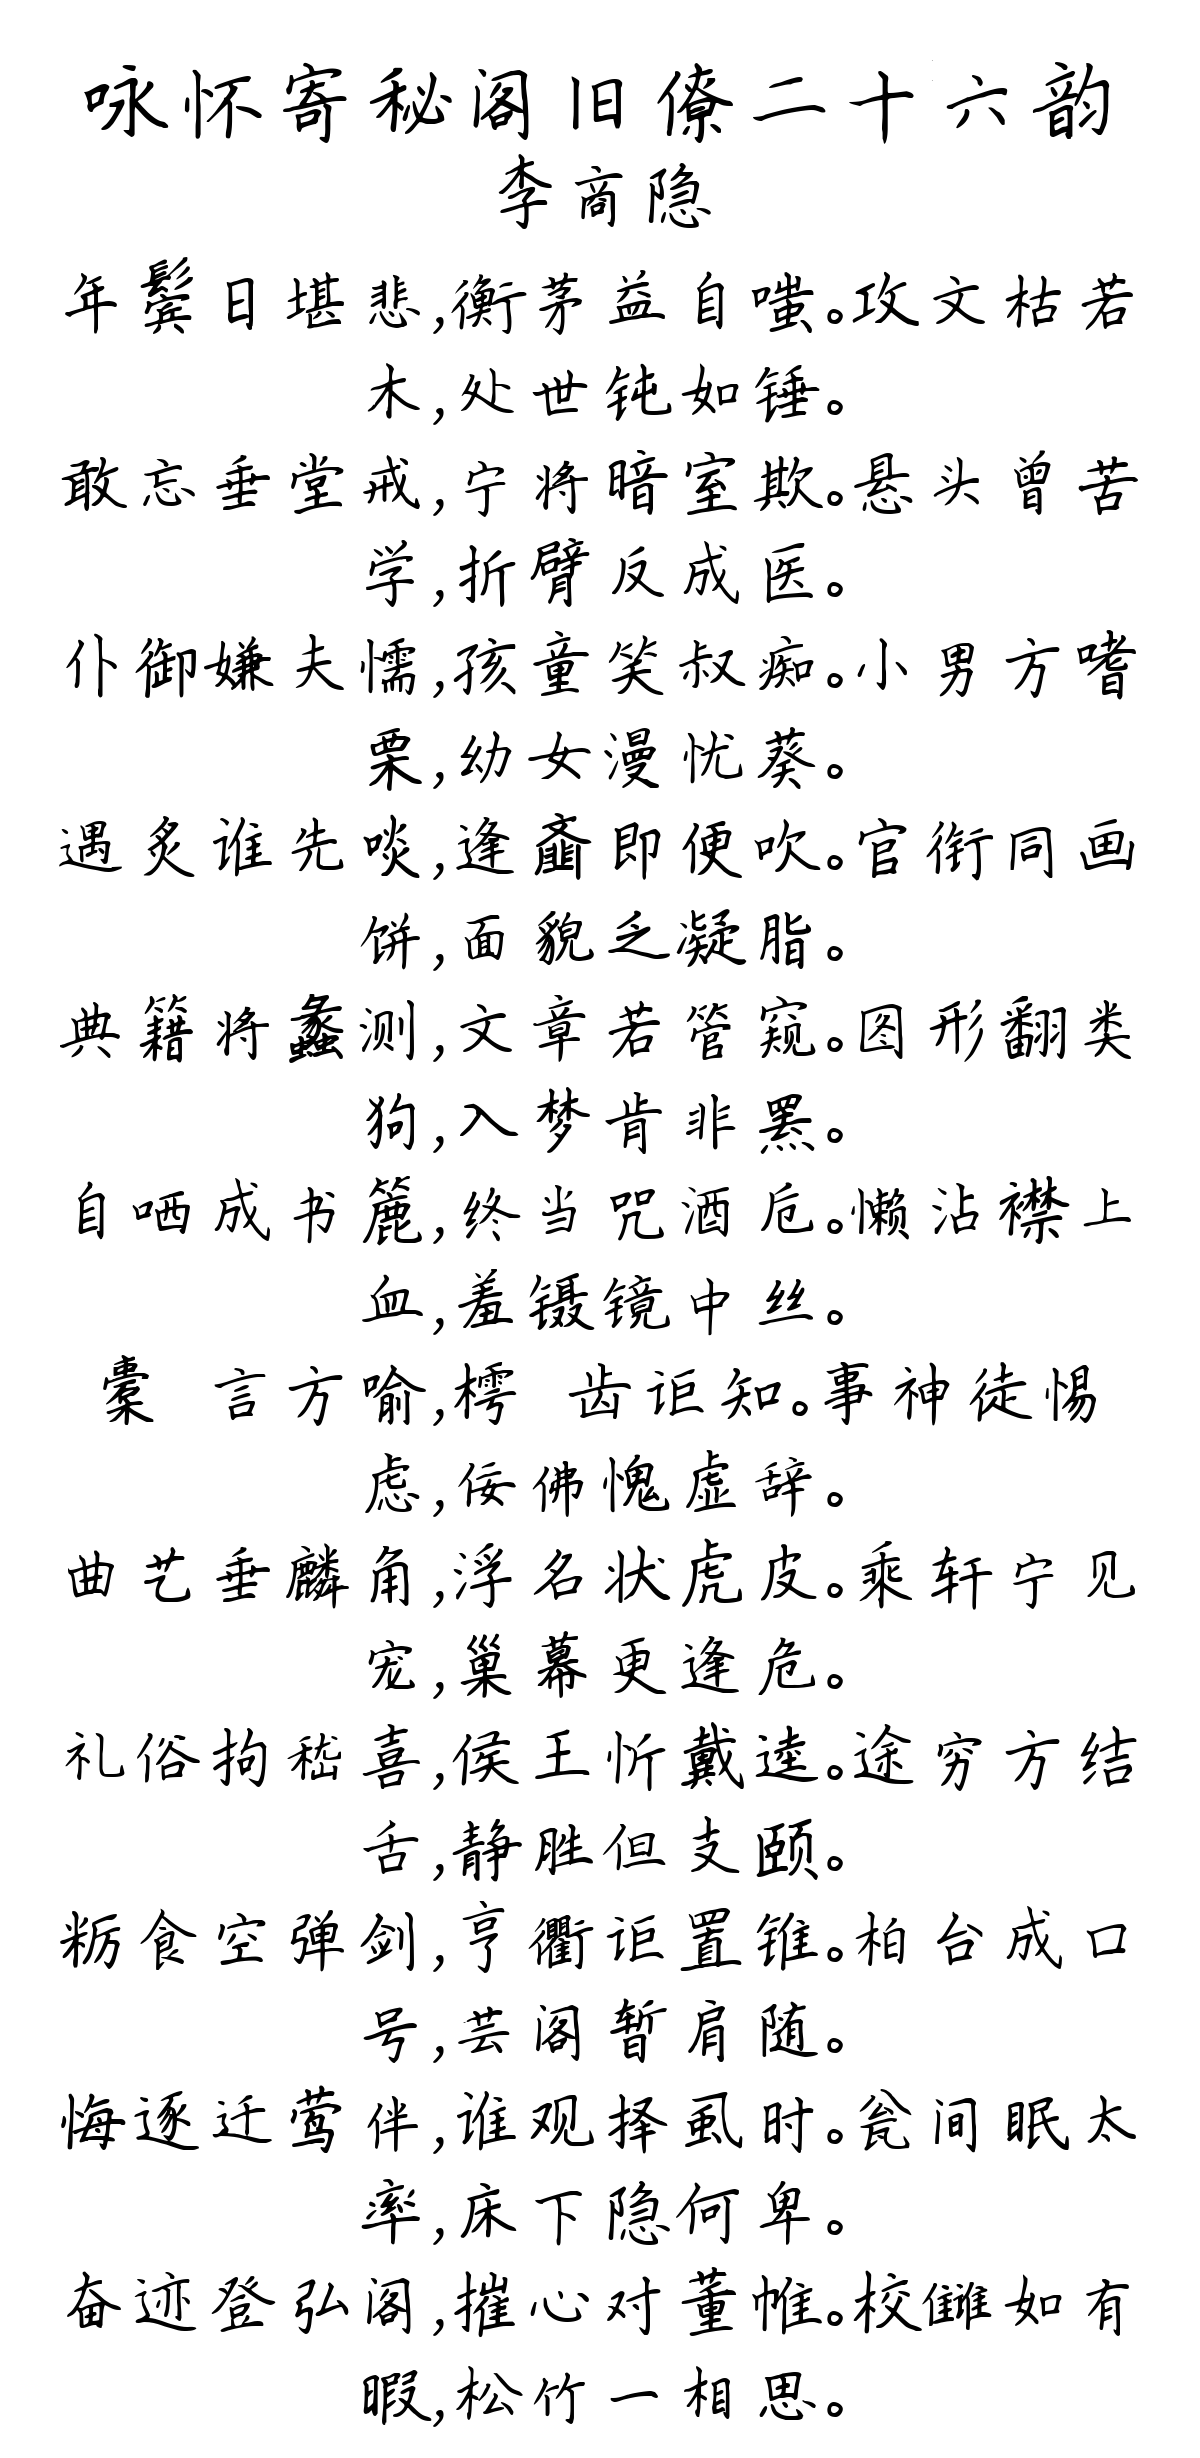 咏怀寄秘阁旧僚二十六韵
李商隐
年鬓日堪悲,衡茅益自嗤。攻文枯若
木,处世钝如锤。
敢忘垂堂戒,宁将暗室欺。悬头曾苦
学,折臂反成医。
仆御嫌夫懦,孩童笑叔痴。小男方嗜
栗,幼女漫忧葵。
遇炙谁先啖,逢齑即便吹。官衔同画
饼,面貌乏凝脂。
典籍将蠡测,文章若管窥。图形翻类
狗,入梦肯非罴。
自哂成书簏,终当咒酒卮。懒沾襟上
血,羞镊镜中丝。
橐 言方喻,樗 齿讵知。事神徒惕
虑,佞佛愧虚辞。
曲艺垂麟角,浮名状虎皮。乘轩宁见
宠,巢幕更逢危。
礼俗拘嵇喜,侯王忻戴逵。途穷方结
舌,静胜但支颐。
粝食空弹剑,亨衢讵置锥。柏台成口
号,芸阁暂肩随。
悔逐迁莺伴,谁观择虱时。瓮间眠太
率,床下隐何卑。
奋迹登弘阁,摧心对董帷。校雠如有
暇,松竹一相思。